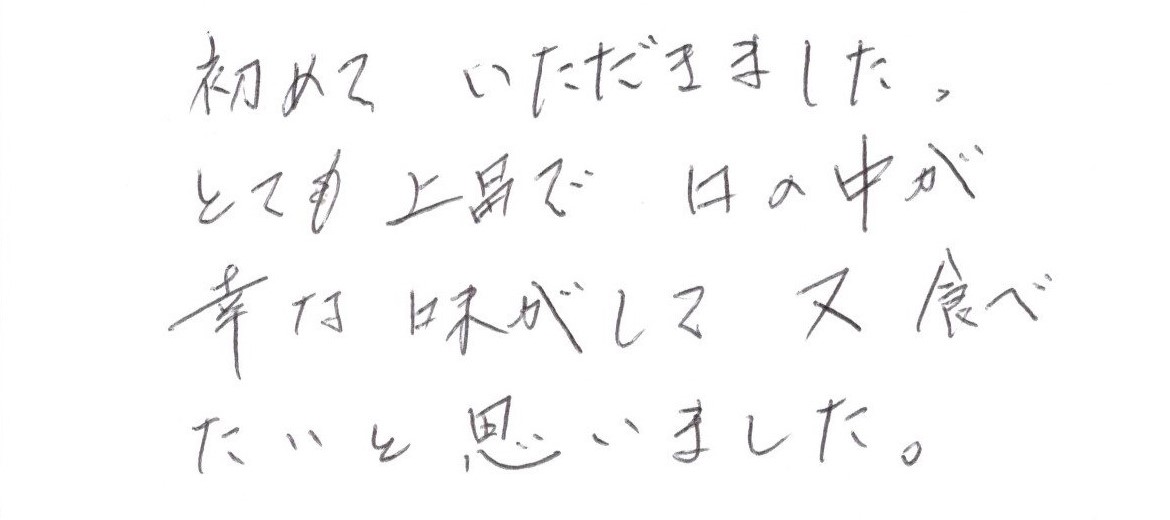 初めて いただきました、
とても上品で 口の中が
幸な 味がして 又 食べ
たいと思いました。